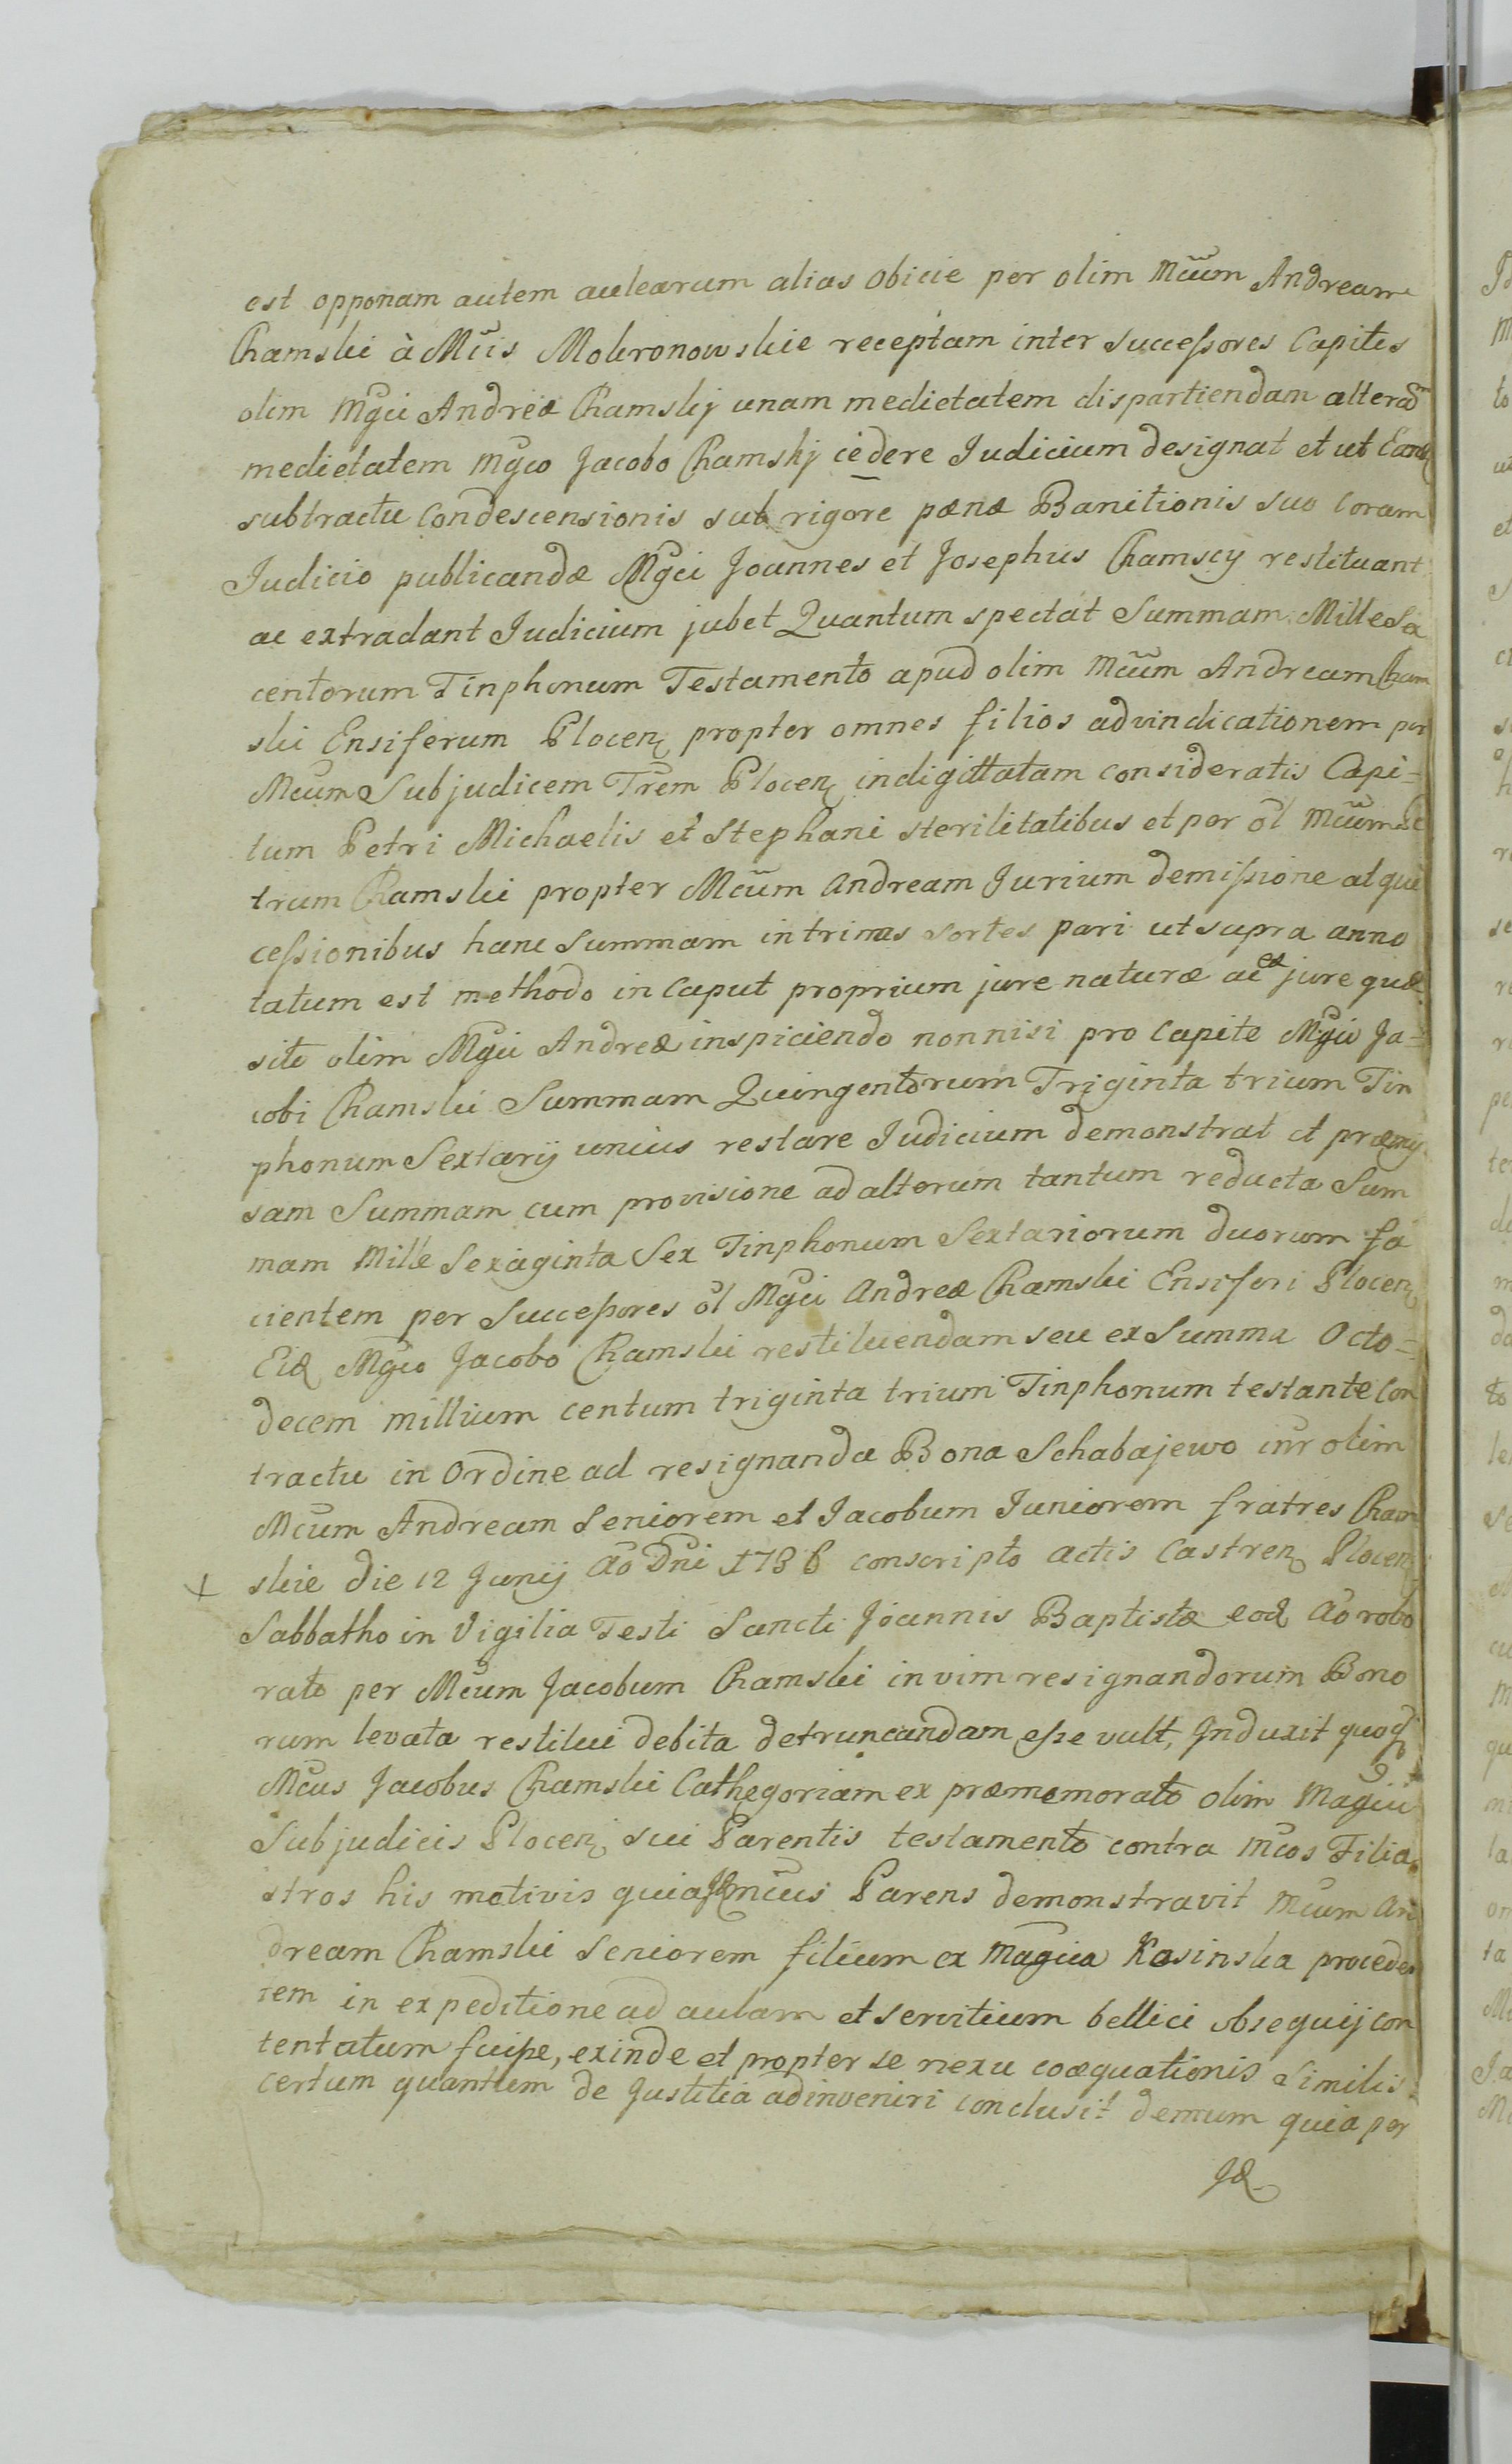 est opponam autem aulearum alias Obicie per olim Mcum Andream
Chamski à Mcis Mokronowskie receptam inter Successores Capites
olim Mgci Andreæ Chamskij unam medietatem dispartiendam alteram
medietatem Mgco Jacobo Chamskj cedere Iudicium designat et ut Eand
subtractu Condescensionis sub rigore pænæ Banitionis suo Coram
Iudicio publicandæ Mgci Joannes et Josephus Chamscy restituant
ac extradant Iudicium jubet Quantum spectat Summam Mille Sex
centorum Tinphonum Testamento apud olim Mcum Andream Cham
ski Ensiferum Plocen propter omnes filios advindicationem per
Mcum Subjudicem Trem Plocen indigittatam consideratis Capi=
tum Petri Michaelis et Stephani sterilitatibus et per ol Mcum Pe
trum Chamski propter Mcum Andream Jurium demissione atque
cessionibus hanc Summam in trinas sortes pari ut supra anno
tatum est methodo in Caput proprium jure naturæ ac ex jure quæ
sito olim Mgci Andreæ inspiciendo nonnisi pro Capite Mgci Ja=
cobi Chamski Summam Quingentorum Triginta trium Tin
phonum Sextarij unius restare Iudicium demonstrat et præmis
sam Summam cum provisione ad alterum tantum reducta Sum
mam Mille Sexaginta Sex Tinphonum Sextariorum duorum fa
cientem per Successores ol Mgci Andreæ Chamski Ensiferi Plocen
Eid Mgco Jacobo Chamski restituendam seu ex Summa Octo=
decem millium centum triginta trium Tinphonum testante Con
tractu in Ordine ad resignanda Bona Schabajewo inr olim
Mcum Andream Seniorem et Jacobum Juniorem fratres Cham
skie die 12 Junij Ao Dni 1736 conscripto actis Castren Plocen
Sabbatho in Vigilia Festi Sancti Joannis Baptistæ eod Ao robo
rato per Mcum Jacobum Chamski in vim resignandorum Bono
rum levata restitui debita detruncandam esse vult, Induxit quoq
Mcus Jacobus Chamski Cathegoriam ex præmemorato olim Magci
Subjudicis Plocen sui Parentis testamento contra Mcos Filia
stros his motivis quia Parens demonstravit Mcum An
dream Chamski Seniorem filium ex Magca Kosinska proceden
tem in expeditione ad aulam et servitium bellici obsequij con
tentatum fuisse, exinde et propter se nexu coæquationis similis
certum quantum de Justitia adinveniri conclusit demum quia per
Id